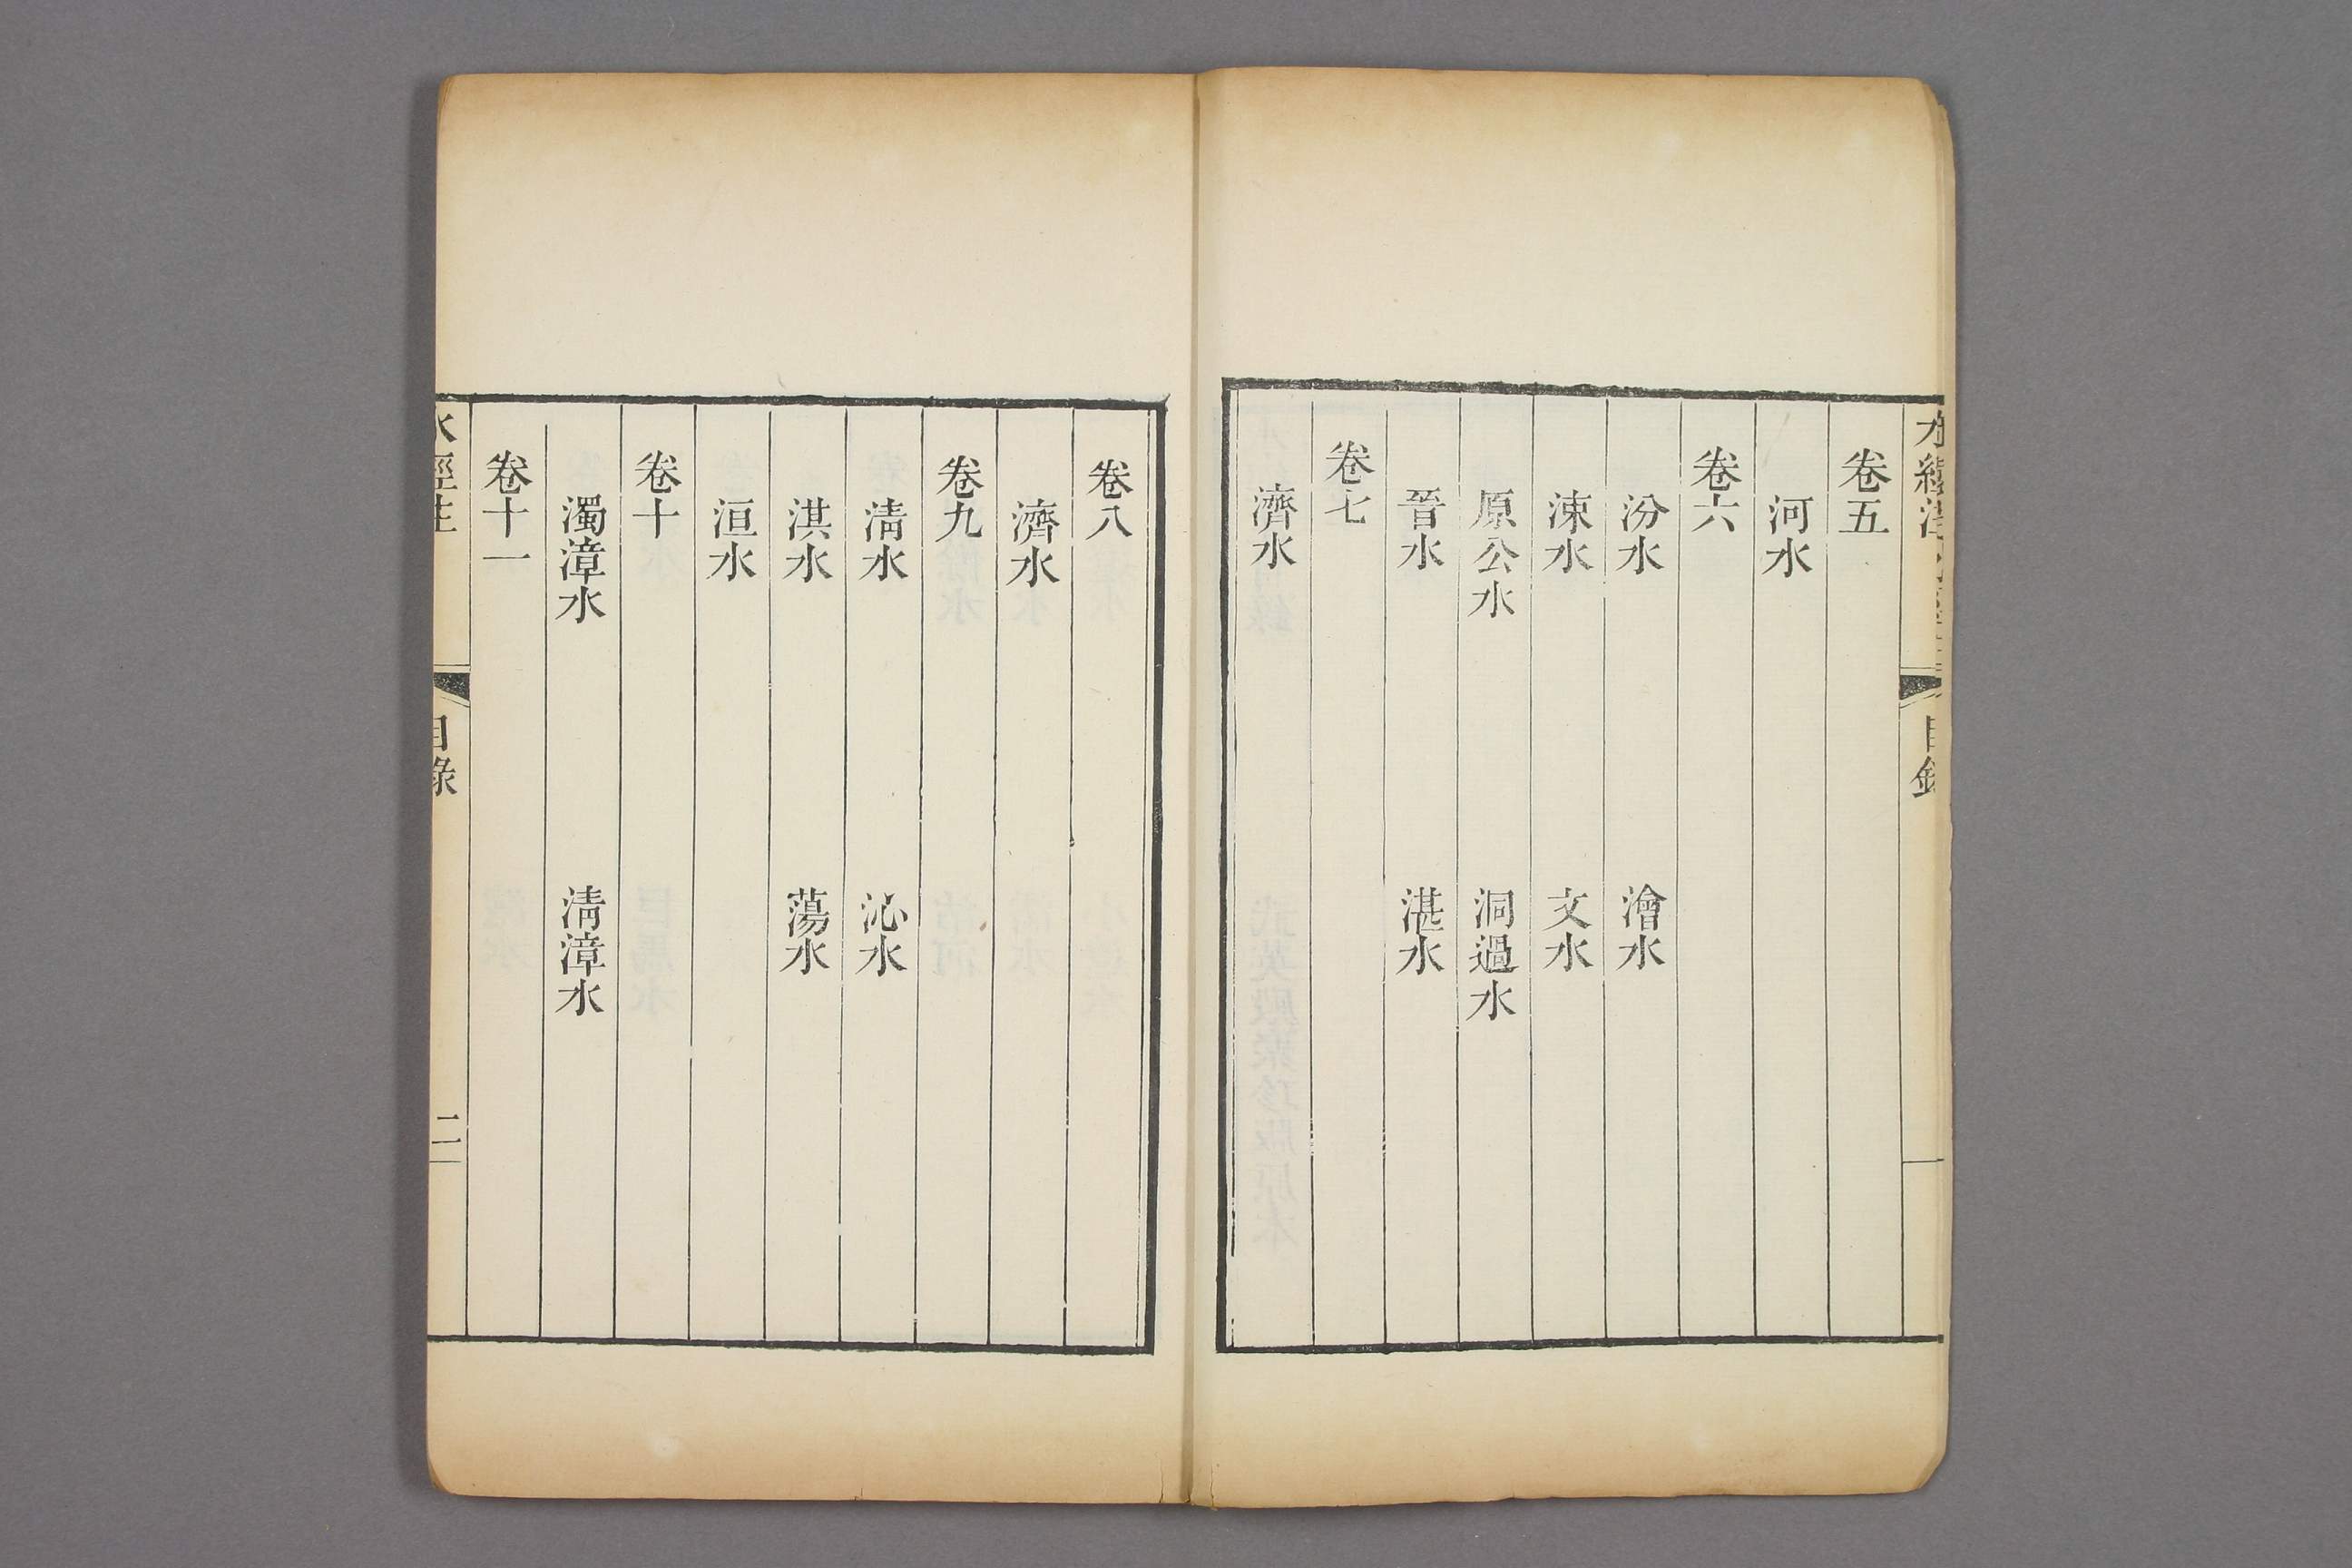 卷五
河水
卷六
汾水 澮水
涑水 文水
原公水 洞過水
晉水 湛水
卷七
濟水
卷八
濟水
卷九
淸水 沁水
淇水 蕩水
洹水
卷十
濁漳水 淸漳水
卷十一
水經注 目錄 二